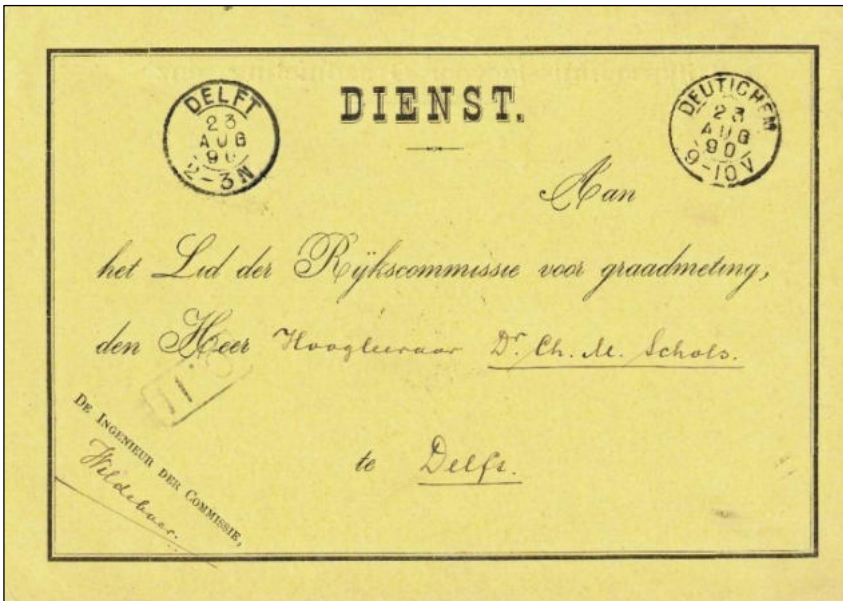 DELFT
23
AUG
90
2-3N
DIENST.
DEUTICHEM
23
AUG
90
9-10V
Aan
het Lid der Rijkscommissie voor graadmeting,
den Heer Hoogleeraar Dr. Ch. M. Schols.
DE INGENIEUR DER COMMISSIE,
Wildeboer.
te Delft.